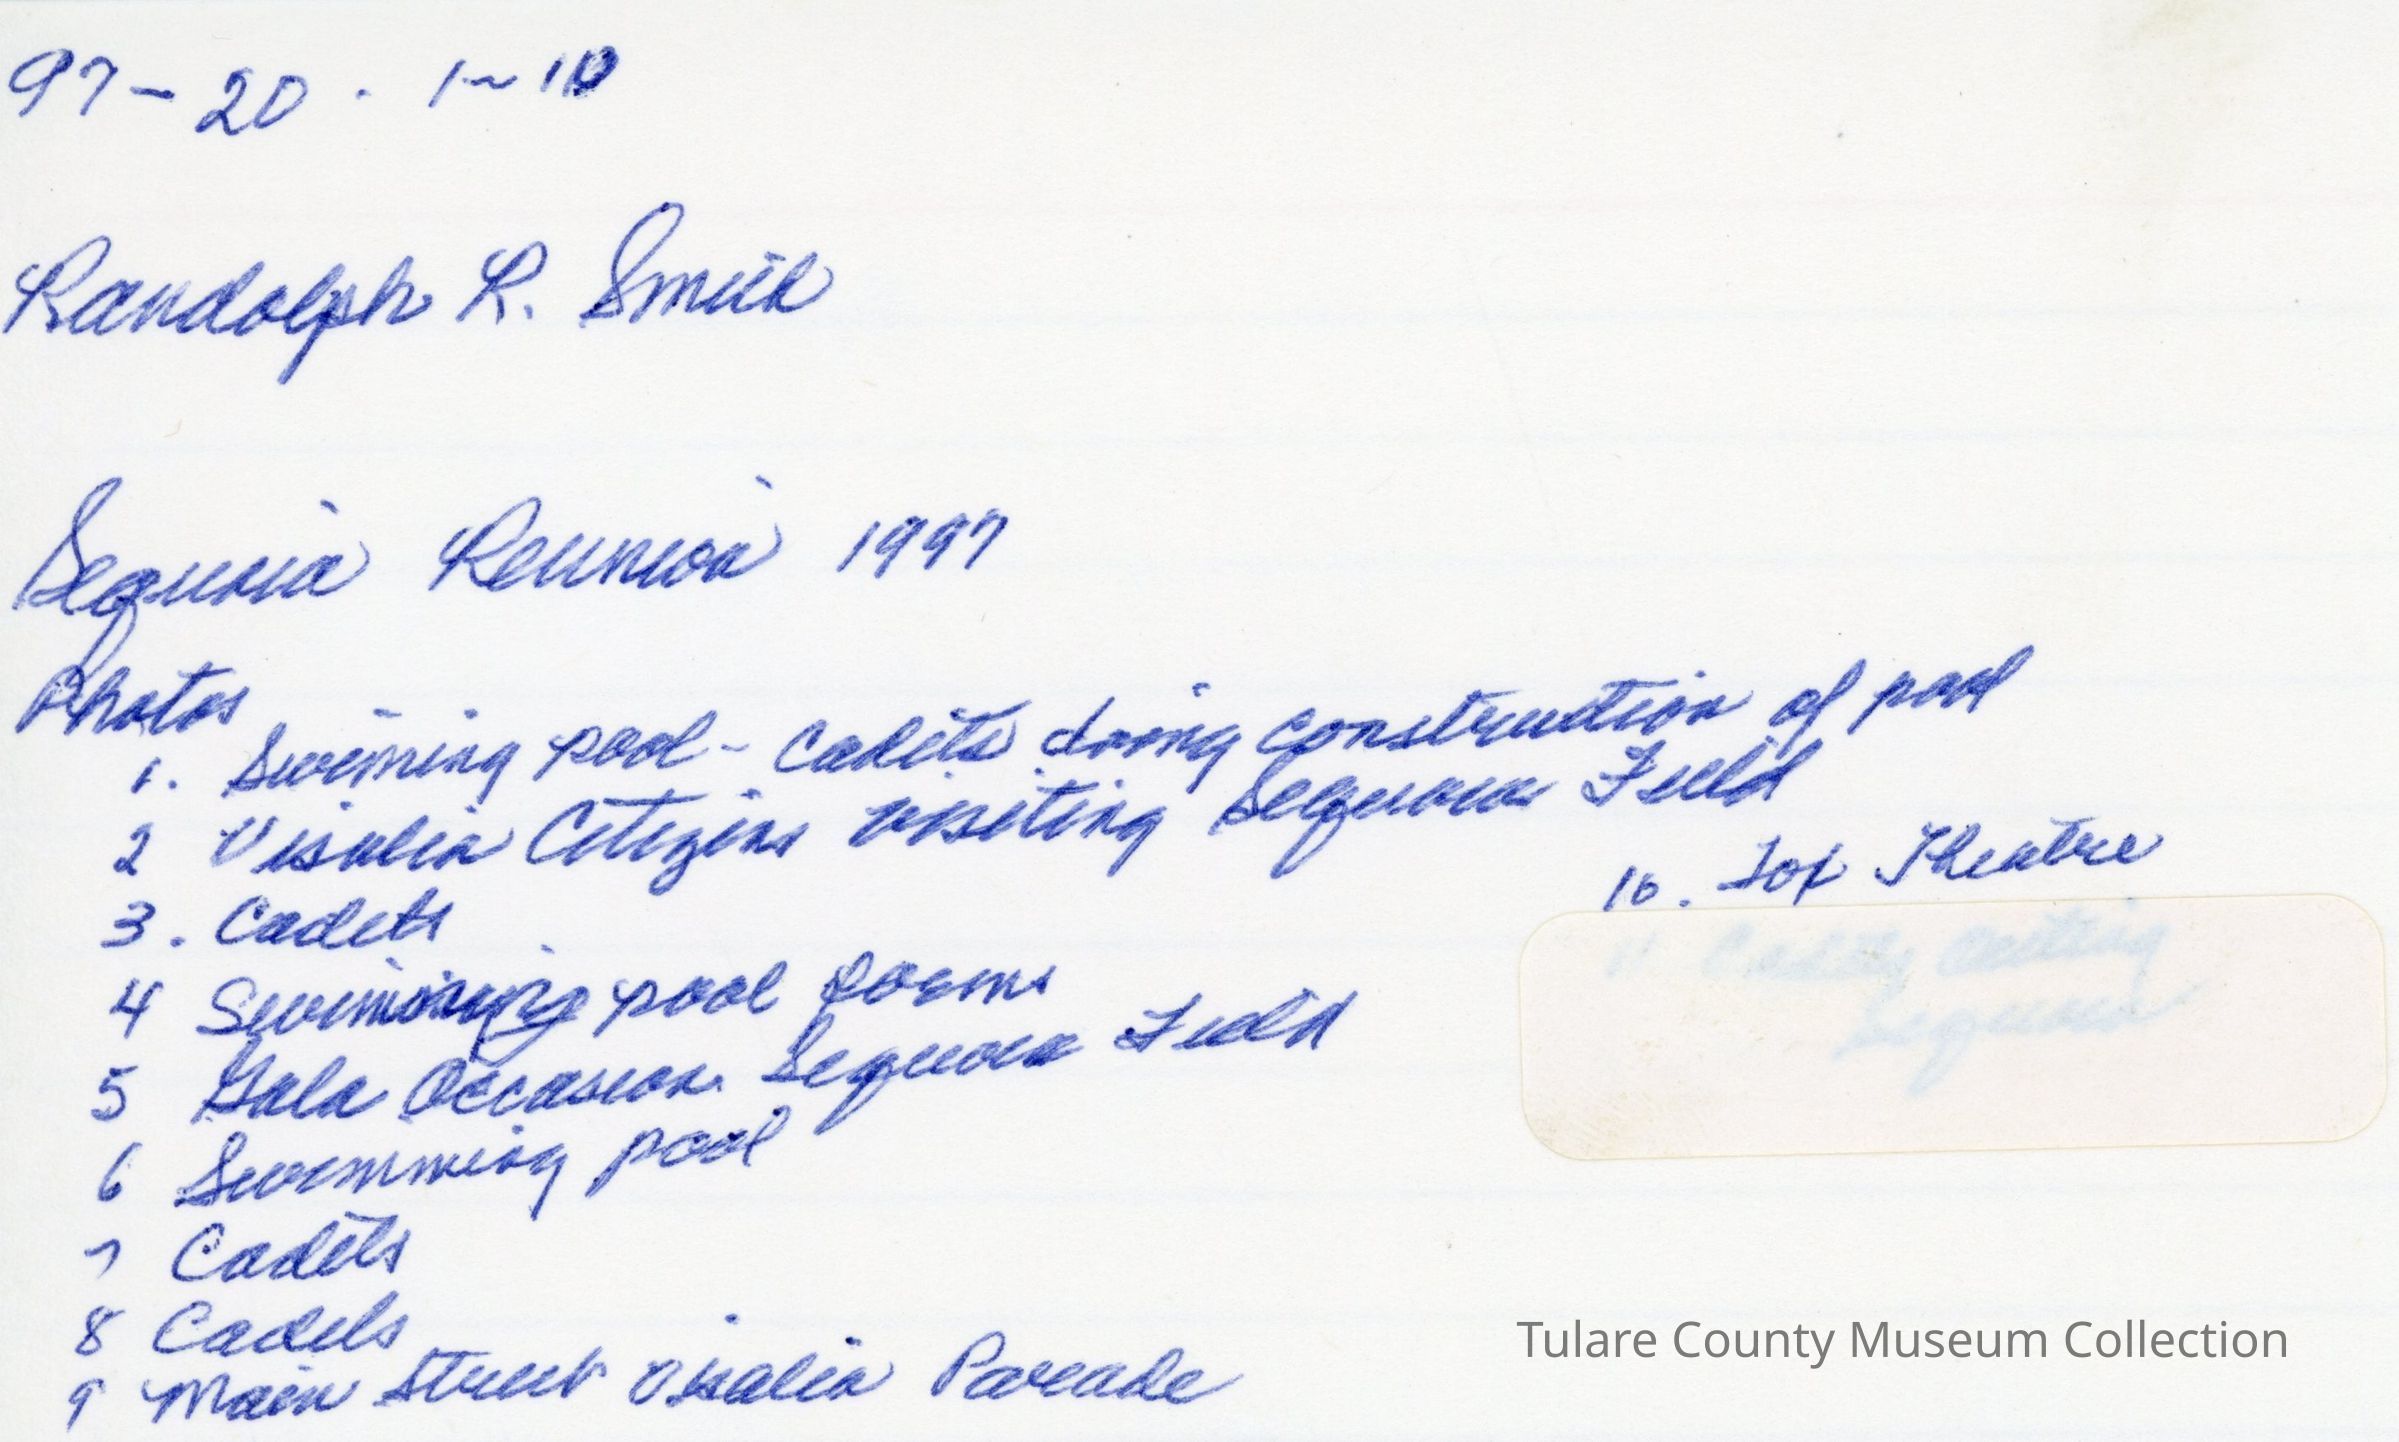 97-20. 1-10
Randolph R. Smith
Sequoia Reunion 1997
Photos
1. Swiming pool - Cadets doing construction of pool
2 Visalia Citizens visiting Sequoia Field
3. Cadets
4 Swimming pool forms
5 Gala Occasion Sequoia Field
6 Swimming pool
7 Cadets
8 Cadets
9 Main Street Visalia Parade
10. Fox Theatre
11 Outing
Sequoia
Tulare County Museum Collection